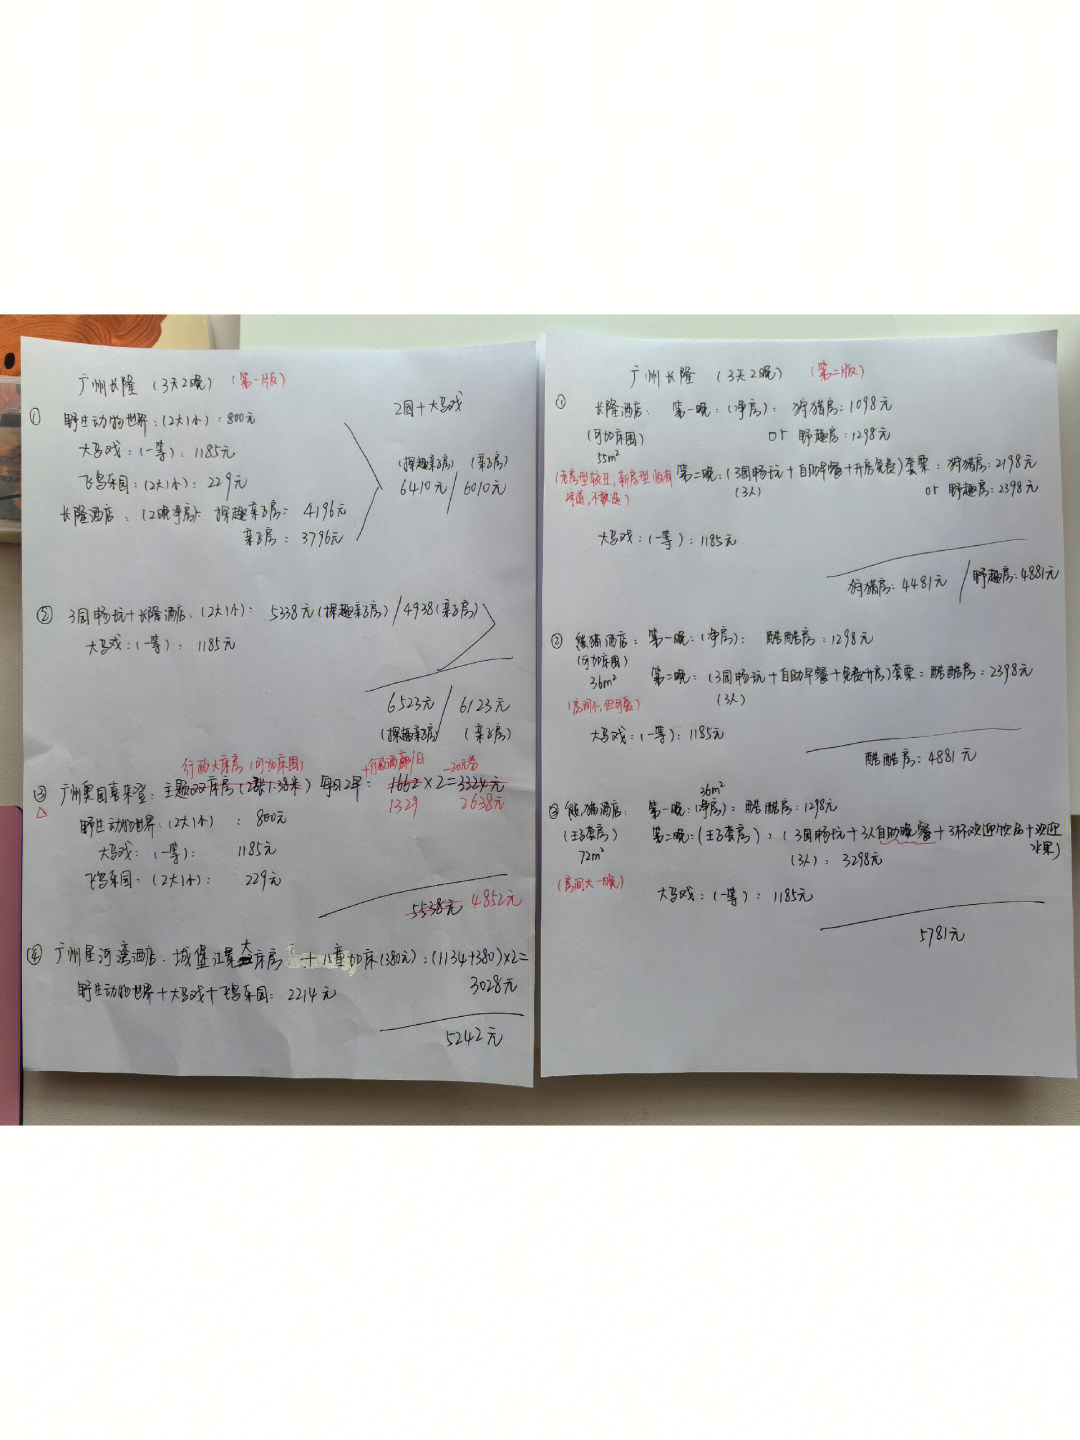 广州长隆（3天2晚）（第一版）
① 野生动物世界：（2大1小）：800元
2园+大马戏
大马戏：（一等）：1185元
飞鸟乐园：（2大1小）：229元
（探趣亲子房）（亲子房）
6410元/6010元
长隆酒店：（2晚净房）：探趣亲子房：4196元
亲子房：3796元
② 3园畅玩+长隆酒店：（2大1小）：5338元（探趣亲子房）/4938（亲子房）
大马戏：（一等）：1185元
6523元/6123元
（探趣亲子房）（亲子房）
行政大床房（可加床围）+行政酒廊/日 -20元券
③ 广州奥园喜来登：主题双床房（2张1.38米）每日2早：1662×2=3324元
1329 2638元
野生动物世界：（2大1小）：800元
大马戏：（一等）：1185元
飞鸟乐园：（2大1小）：229元
5538元 4852元
④ 广州星河湾酒店：城堡江景大床房+儿童加床（380元）：（1134+380）×2=
3028元
野生动物世界+大马戏+飞鸟乐园：2214元
5242元
广州长隆（3天2晚）（第二版）
① 长隆酒店：第一晚：（净房）：狩猎房：1098元
（可加床围） or 野趣房：1298元
55m²
（老房型较旧，新房型怕有
味道，不敢选）
第二晚：（3园畅玩+自助早餐+升房免费）套票：狩猎房：2198元
（3人） or 野趣房：2398元
大马戏：（一等）：1185元
狩猎房：4481元/野趣房：4881元
② 熊猫酒店：第一晚：（净房）：酷酷房：1298元
（可加床围）
36m²
第二晚：（3园畅玩+自助早餐+免费升房）套票：酷酷房：2398元
（3人）
（房间小，但可爱）
大马戏：（一等）：1185元
酷酷房：4881元
36m²
③ 熊猫酒店：第一晚：（净房）：酷酷房：1298元
（王子套房）第二晚：（王子套房）：（3园畅玩+3人自助晚餐+3杯欢迎饮品+欢迎
水果）
72m² （3人）：3298元
（房间大一晚）
大马戏：（一等）：1185元
5781元